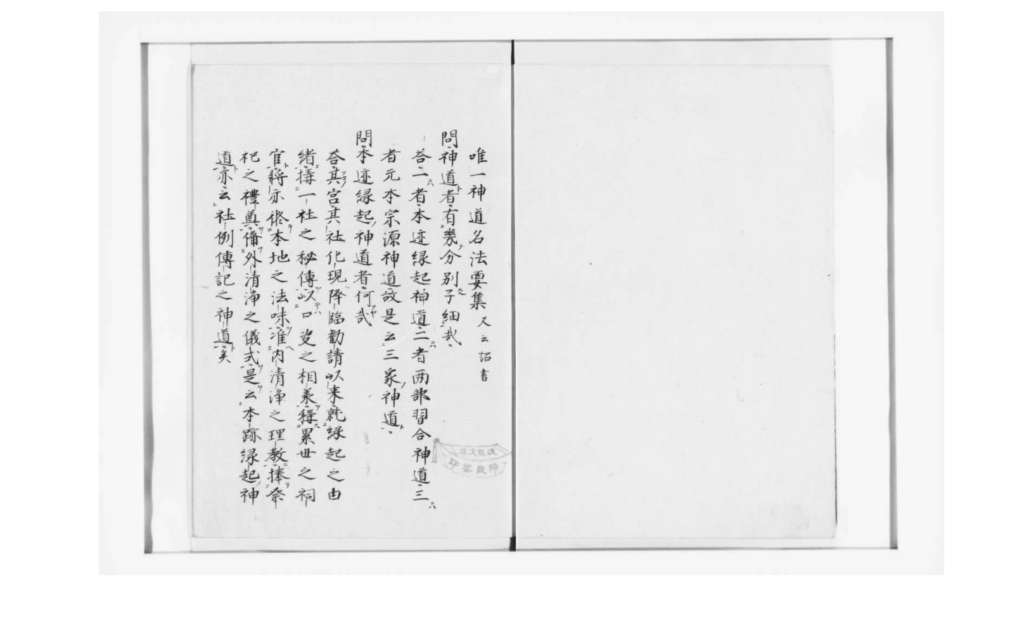 唯一神道名法要集 又云詔書
問神道者有幾分別子細哉
荅一者本迹縁起神道二者兩部習合神道三
者元本宗源神道故是云三家神道
問本迹縁起神道者何哉
荅其宮其社化現降臨勸請以来託縁起之由
緒構一社之秘傳以口决之相承稱累世之祠
官将亦修本地之法味准内清浄之理教捧祭
祀之禮奠備外清浄之儀式是云本跡縁起神
道亦云社例傳記之神道矣